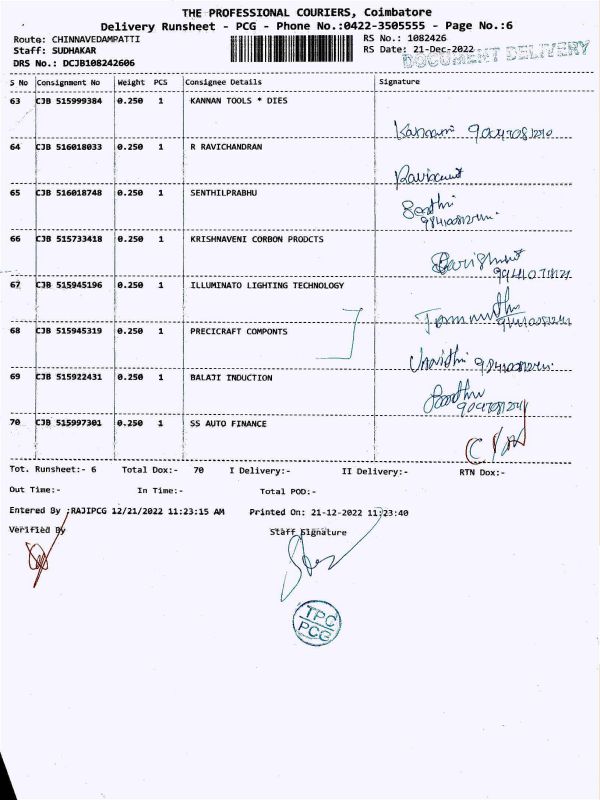 THE PROFESSIONAL COURIERS, Coimbatore
Delivery Runsheet - PCG - Phone No.:0422-3505555 - Page No.:6
Route: CHINNAVEDAMPATTI
RS No.: 1082426
Staff: SUDHAKAR
RS Date: 21-Dec-2022
DOCUMENT DELIVERY
DRS No.: DCJB108242606
S No Consignment No Weight PCS Consignee Details Signature
63 CJB 515999384 0.250 1 KANNAN TOOLS * DIES
Kannan
64 CJB 516018033 0.250 1 R RAVICHANDRAN
65 CJB 516018748 0.250 1 SENTHILPRABHU
66 CJB 515733418 0.250 1 KRISHNAVENI CORBON PRODCTS
67 CJB 515945196 0.250 1 ILLUMINATO LIGHTING TECHNOLOGY
68 CJB 515945319 0.250 1 PRECICRAFT COMPONTS
69 CJB 515922431 0.250 1 BALAJI INDUCTION
70 CJB 515997301 0.250 1 SS AUTO FINANCE
Tot. Runsheet:- 6 Total Dox:- 70 I Delivery:- II Delivery:- RTN Dox:-
Out Time:- In Time:- Total POD:-
Entered By :RAJIPCG 12/21/2022 11:23:15 AM Printed On: 21-12-2022 11:23:40
Verified By Staff Signature
TPC
PCG